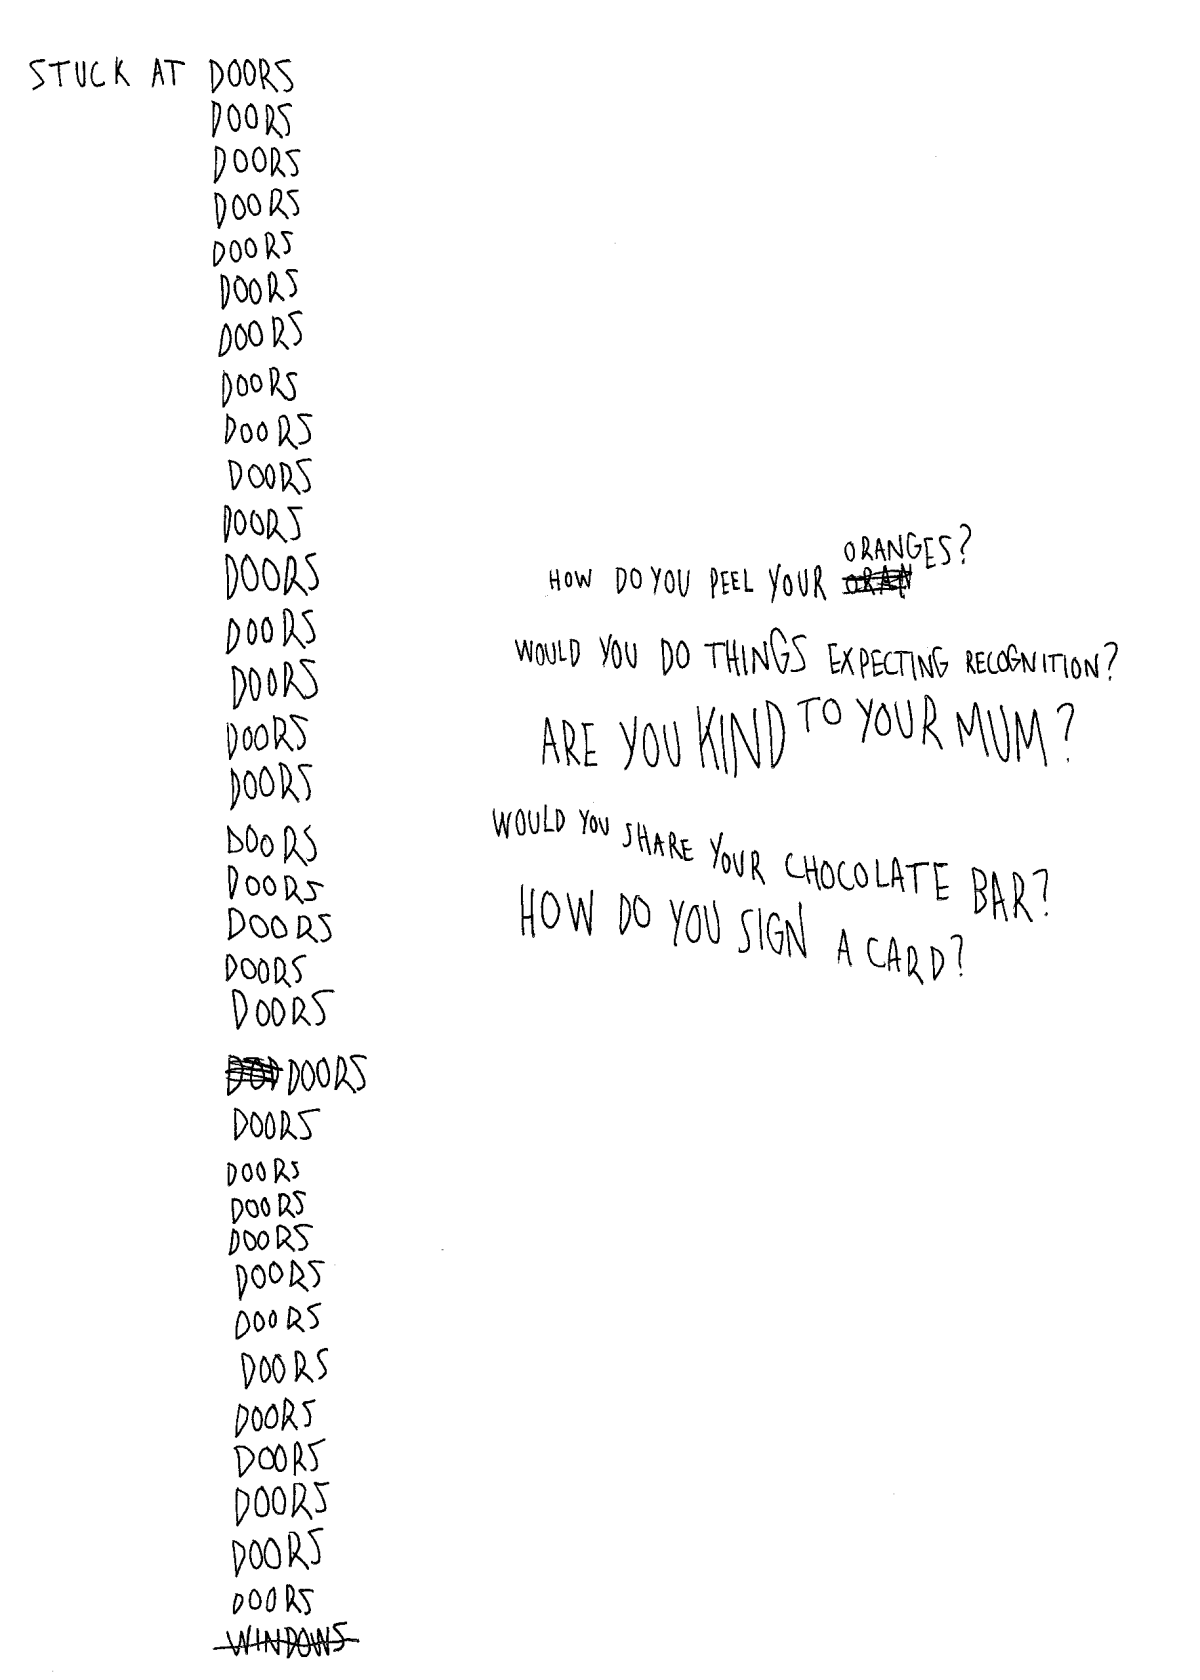 STUCK AT DOORS
DOORS
DOORS
DOORS
DOORS
DOORS
DOORS
DOORS
DOORS
DOORS
DOORS
DOORS
DOORS
DOORS
DOORS
DOORS
DOORS
DOORS
DOORS
DOORS
DOORS
DOORS
DOORS
DOORS
DOORS
DOORS
DOORS
DOORS
DOORS
DOORS
DOORS
DOORS
DOORS
DOORS
WINDOWS
HOW DO YOU PEEL YOUR ORANGES?
WOULD YOU DO THINGS EXPECTING RECOGNITION?
ARE YOU KIND TO YOUR MUM?
WOULD YOU SHARE YOUR CHOCOLATE BAR?
HOW DO YOU SIGN A CARD?